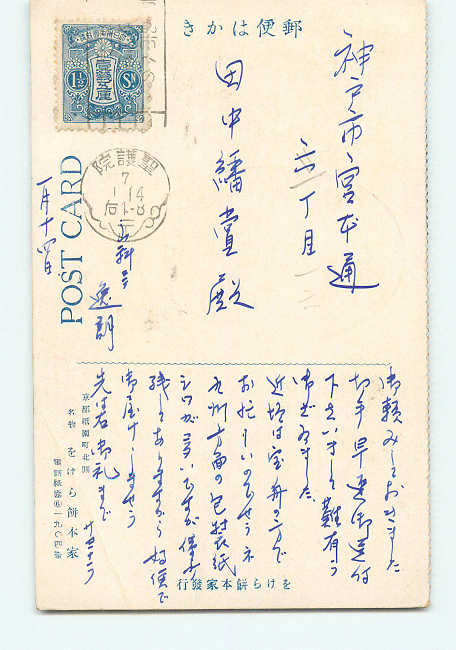 郵便はかき
神戸市宮本通
六丁目一二
田中繙賞殿
一月十四日
逸朗
POST CARD
1½ Sn
聖護院
7
1 14
御頼みしておきました
切手早速御送付
下さいまして難有う
御ざゐました
近頃は宝舟の方で
お忙しいのでせうネ
九州方面の包装紙
シワが多いですが
残してありますから好便で
御届けしませう
先は右御礼まで
サヨナラ
京都祇園町北側
名物 をけら餅本家
電話祇園⑥一九〇四番
をけら餅本家發行